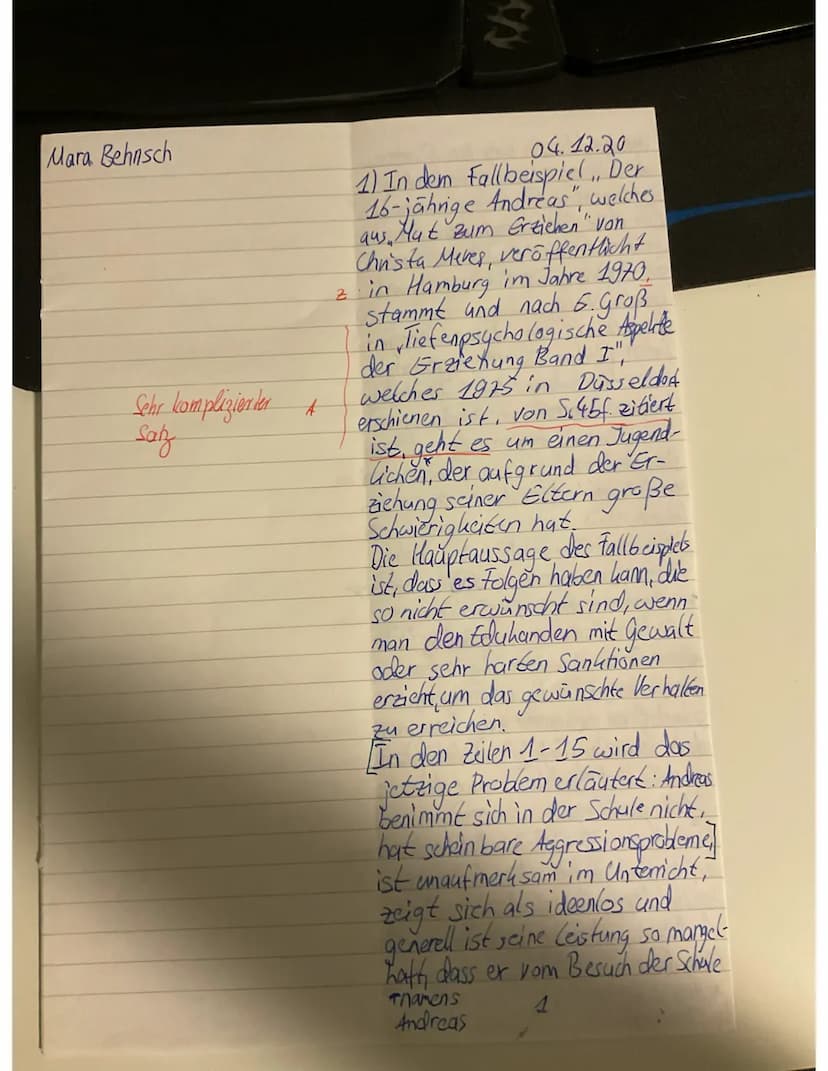 Mara Behnsch
04.12.20
1) In dem Fallbeispiel „Der
16-jährige Andreas", welches
aus „Mut zum Erziehen" von
Christa Meves, veröffentlicht
z in Hamburg im Jahre 1970,
stammt und nach G. Groß
in „Tiefenpsychologische Aspekte
der Erziehung Band I",
welches 1975 in Düsseldorf
Sehr komplizierter A
Satz
erschienen ist, von S.45f. zitiert
ist, geht es um einen Jugend-
lichen*, der aufgrund der Er-
ziehung seiner Eltern große
Schwierigkeiten hat.
Die Hauptaussage des Fallbeispiels
ist, dass es Folgen haben kann, die
so nicht erwünscht sind, wenn
man den Eduhanden mit Gewalt
oder sehr harten Sanktionen
erzieht, um das gewünschte Verhalten
zu erreichen.
[In den Zeilen 1-15 wird das
jetzige Problem erläutert: Andreas
benimmt sich in der Schule nicht,
hat scheinbare Aggressionsprobleme,]
ist unaufmerksam im Unterricht,
zeigt sich als ideenlos und
generell ist seine Leistung so mangel-
haft, dass er vom Besuch der Schule
*namens
Andreas
1